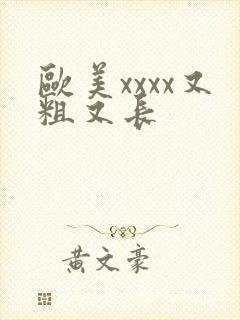 歐美xxxx又
粗又长
黄文豪